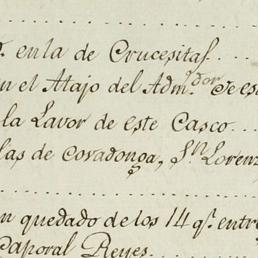 . en la de Crucesitas
n el Atajo del Adm.dor de es
la Lavor de este Casco
las de Covadonga, Sn Lorenz
n quedado de los 14 qs. entre
Caporal Reyes